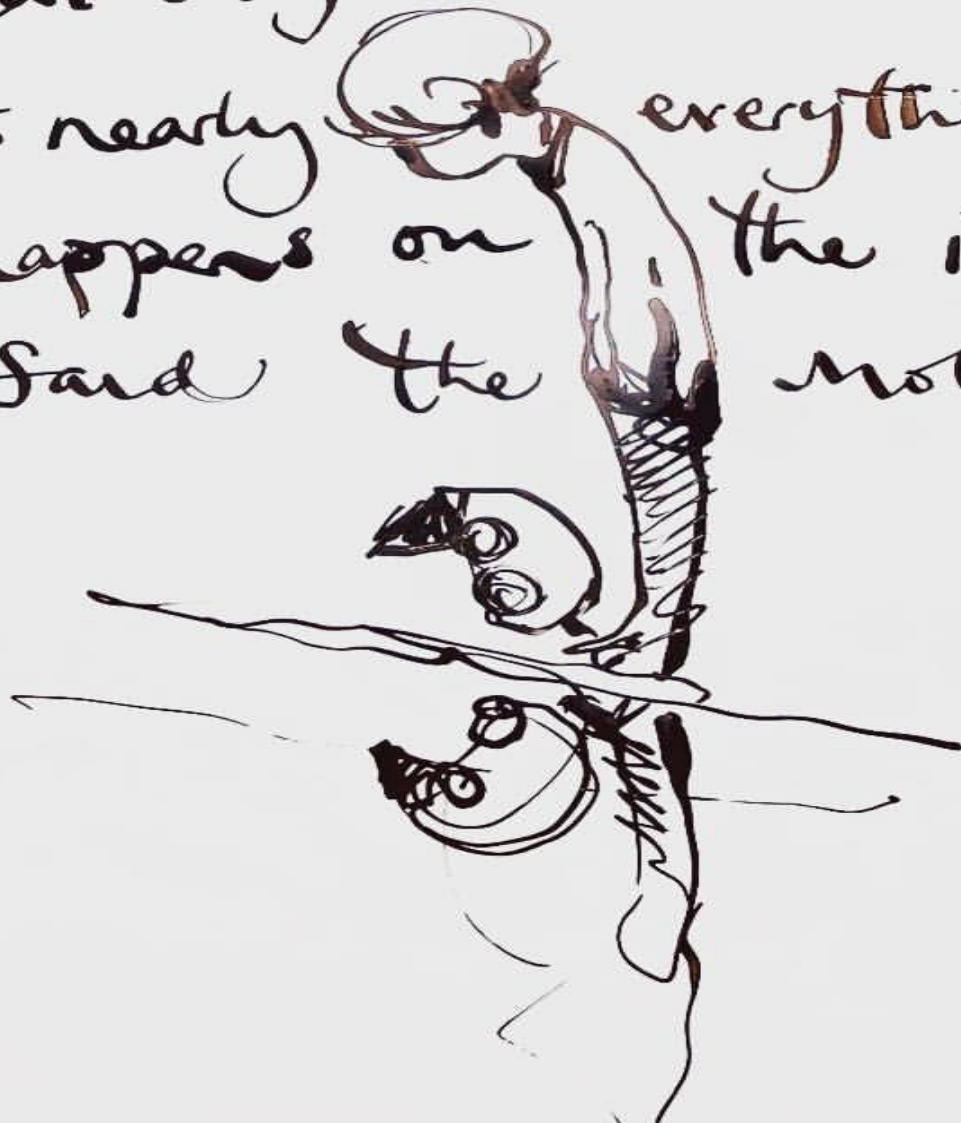 nearly everythi
appens on the i
Said the Mol